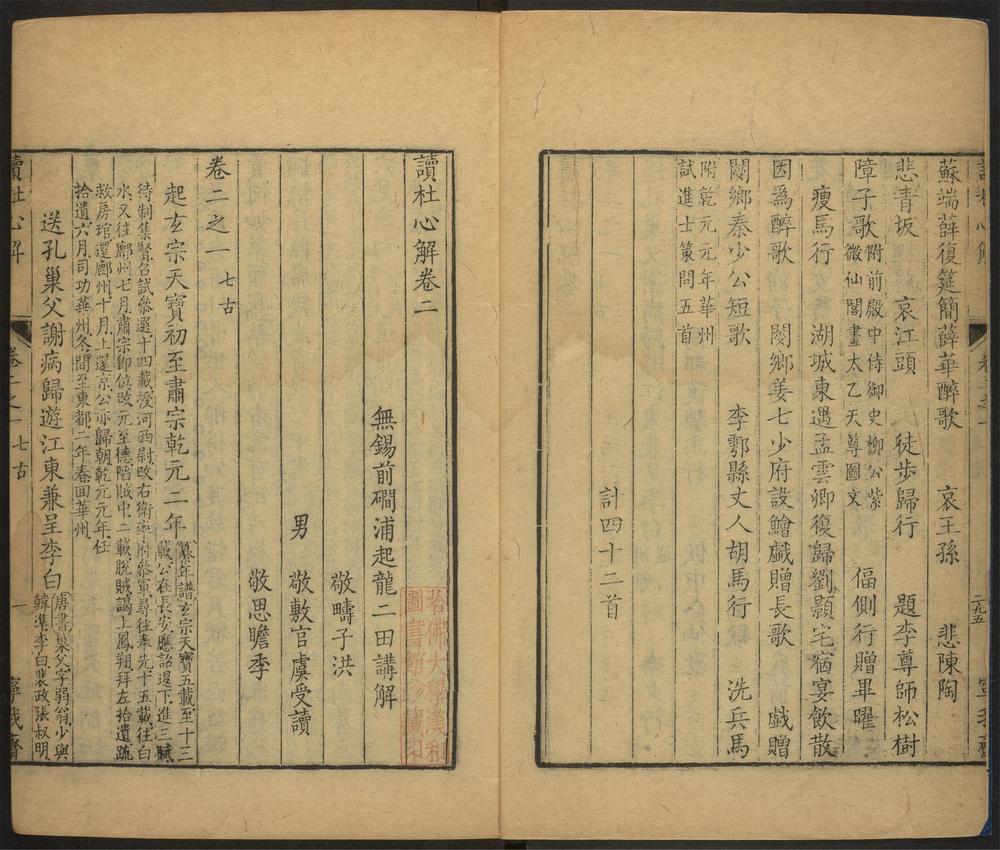 蘇端薛復筵簡薛華醉歌　哀王孫　悲陳陶
悲青坂　哀江頭　徒步歸行　題李尊師松樹
障子歌　附前殿中侍御史柳公紫
微仙閣畫太乙天尊圖文　偪側行贈畢曜
瘦馬行　湖城東遇孟雲卿復歸劉顥宅宿宴飲散
因爲醉歌　閿鄉姜七少府設鱠戲贈長歌　戲贈
閿鄉秦少公短歌　李鄠縣丈人胡馬行　洗兵馬
附乾元元年華州
試進士策問五首
計四十二首
讀杜心解卷二
無錫前磵浦起龍二田講解
敬疇子洪
男　敬敷官虞受讀
敬思瞻季
卷二之一　七古
起玄宗天寶初至肅宗乾元二年
纂年譜玄宗天寶五載至十三
載公在長安應詔退下進三賦
待制集賢召試參選十四載授河西尉改右衛率府參軍尋往奉先十五載往白
水又往鄜州七月肅宗卽位改元至德陷賊中二載脫賊謁上鳳翔拜左拾遺疏
救房琯還鄜州十月上還京公亦歸朝乾元元年任
拾遺六月司功華州冬間至東都二年春回華州
送孔巢父謝病歸遊江東兼呈李白
唐書巢父字弱翁少與
韓準李白裴政張叔明
讀杜心解　卷二之一　七古　一　寧我齋
若佛大學漢和
圖書館珍藏印